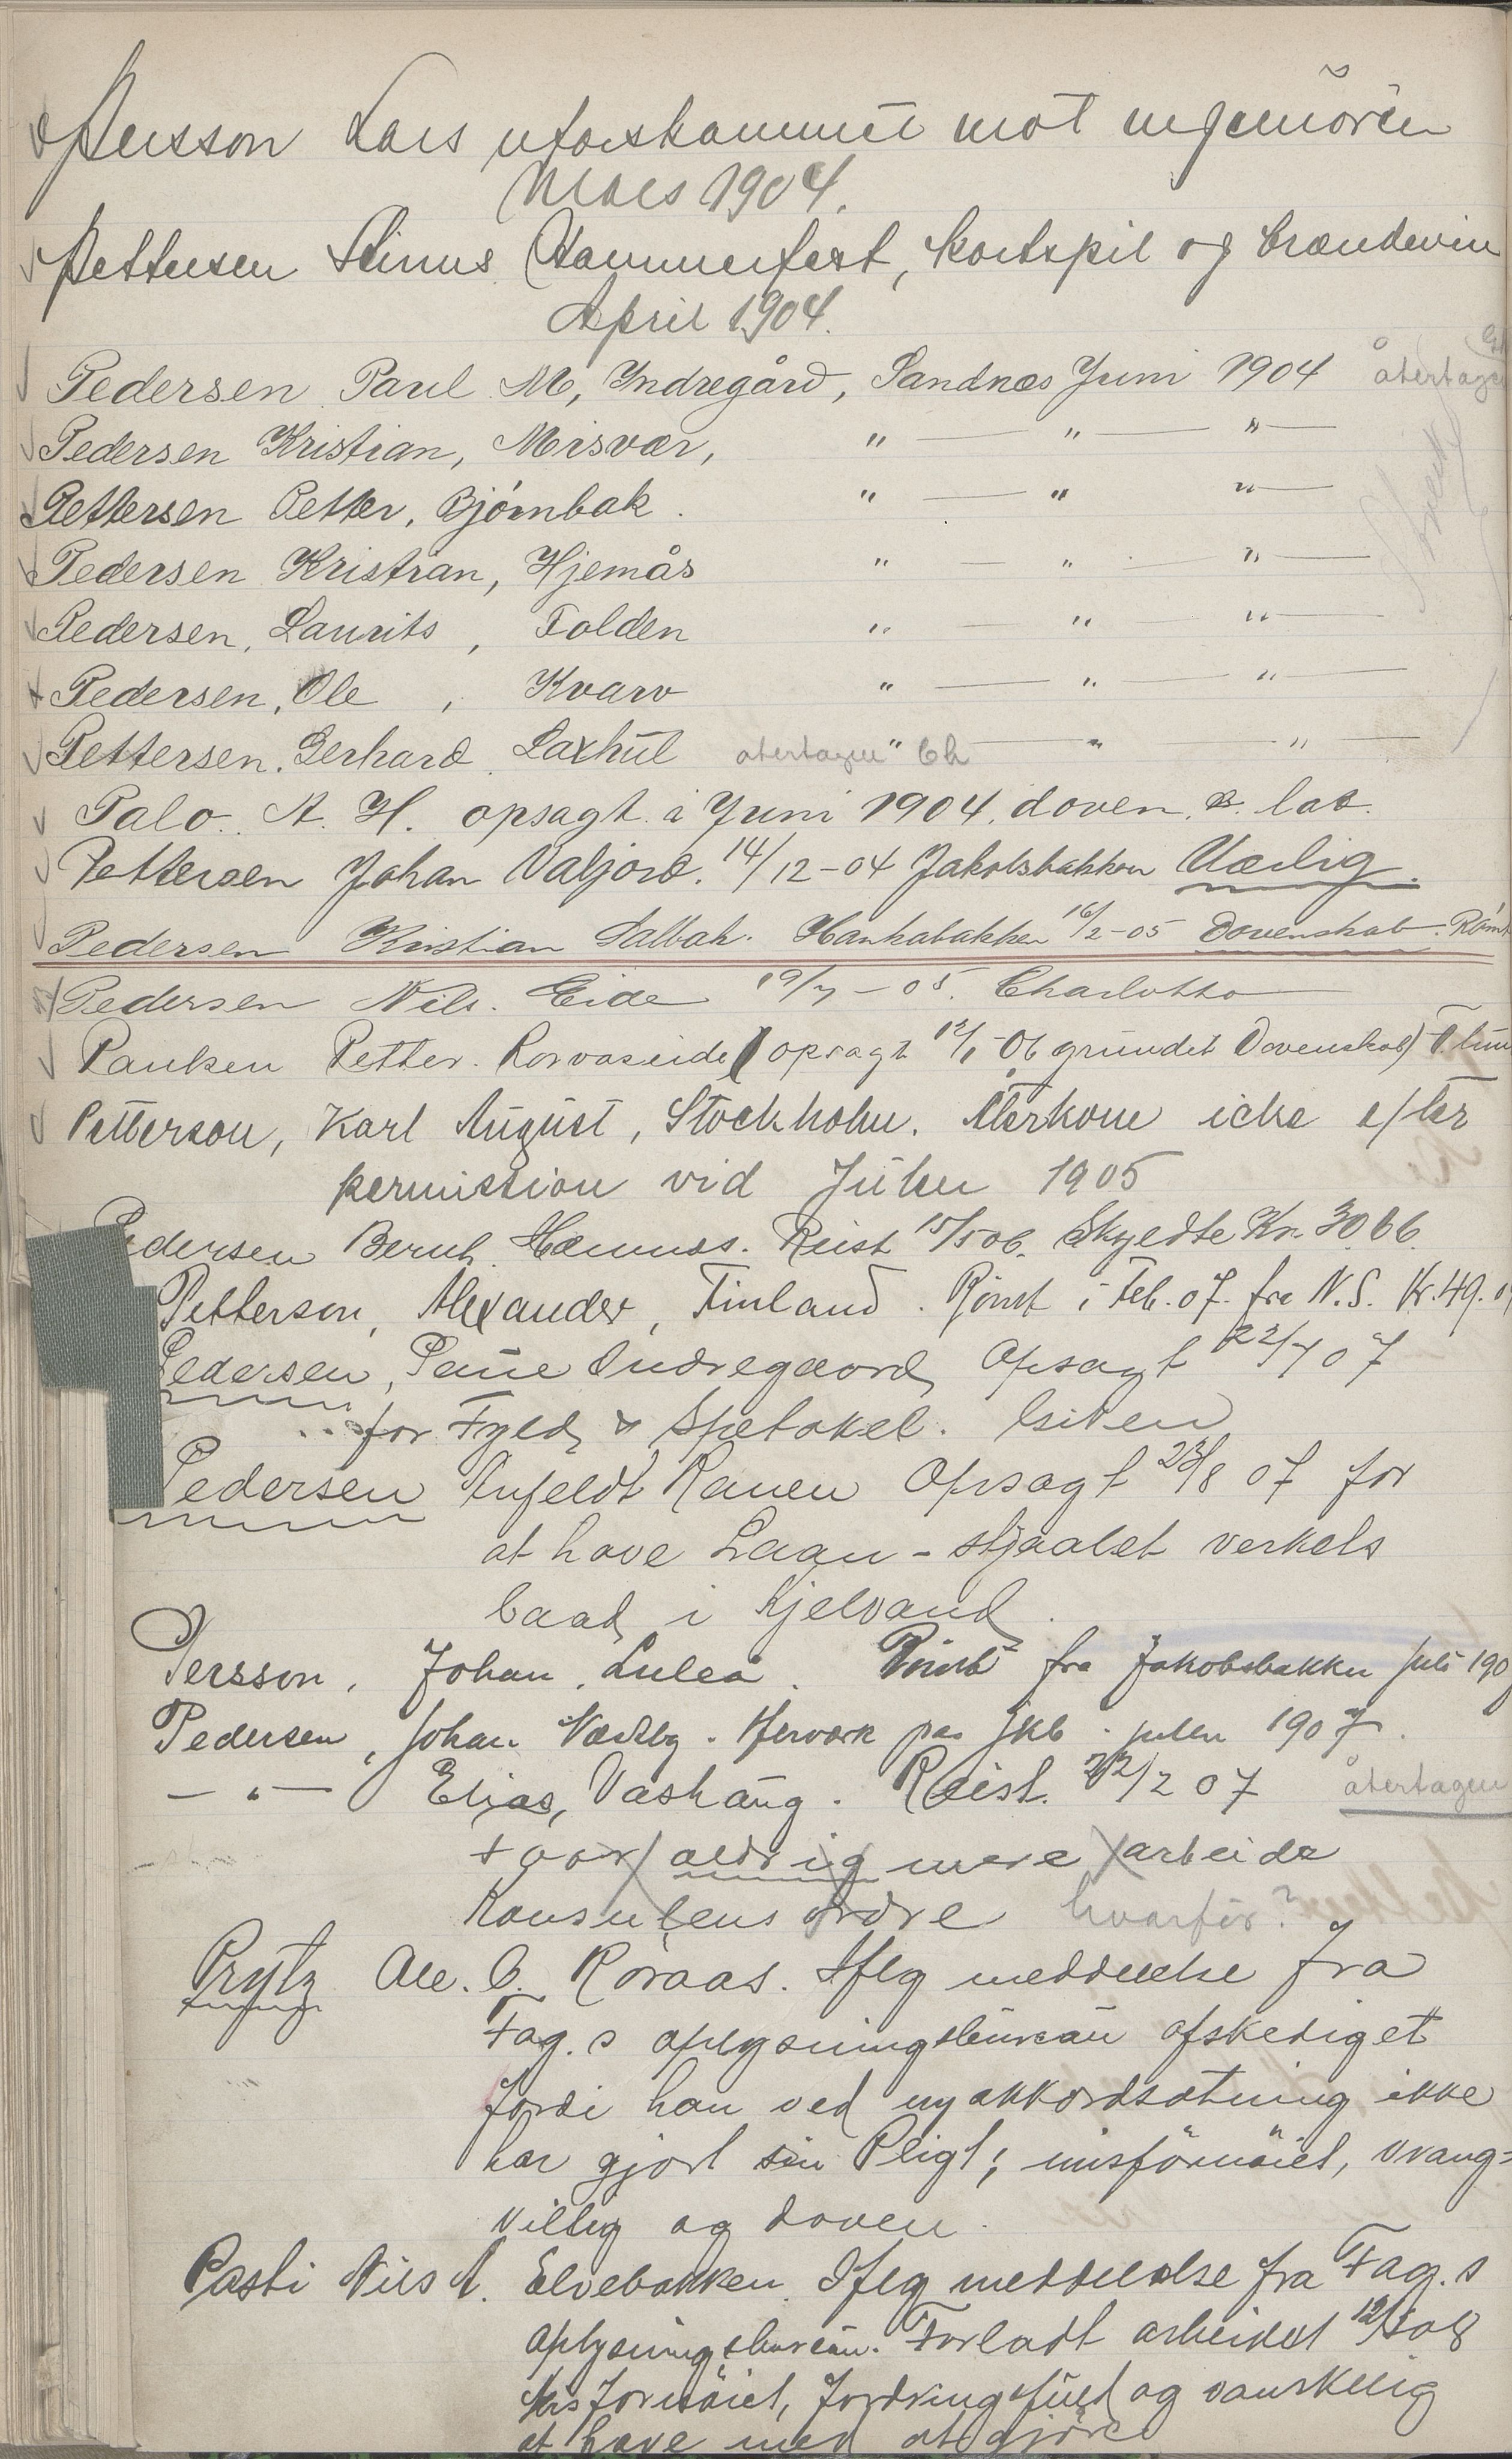 Persson Lars uforskammet mot ingeniören
Mars 1904.
Pettersen Stinus Hammerfest, Kortspil og brændevin
April 1904.
Pedersen Paul M, Indregård, Sandnæs Juni 1904 återtagen
Pedersen Kristian, Misvær, " — " — " —
Pettersen Petter, Bjørnbak. " — " " —
Pedersen Kristian, Hjemås " — " — " —
Pedersen, Laurits, Folden " — " — " —
Pedersen, Ole, Kvarv " — " — " —
Pettersen, Gerhard Laxhul återtagen " Ch — " — " —
Palo. A. H. opsagt i Juni 1904. doven & lat.
Pettersen Johan Valjord. 14/12-04 Jakobsbakken Uærlig.
Pedersen Kristian Salbak. Hankabakken 16/2-05 Dovenskab. Rømt
Pedersen Nils. Eide 19/7-05. Charlotta
Paulsen Petter. Korvaseide (opsagt 12/1-06 grundet Dovenskab)
Petterson, Karl August, Stockholm. Återkom icke efter
permission vid Julen 1905
Pedersen Bernh. Hemnes. Reist 15/5 06. Skyldte Kr. 30.66.
Petterson, Alexander, Finland. Rømt i Feb. 07. fra N.S. Kr. 49.
Pedersen, Paul Indregaard, Opsagt 22/7 07
for Fyld & Spetakel.
Pedersen Anfeldt Ranen Opsagt 23/8 07 for
at have Laan-stjaalet verkets
baad i Kjelvand.
Persson, Johan, Luleå. Rømt fra Jakobsbakken Juli 190
Pedersen, Johan Vadsø. Hærverk paa Jkb. julen 1907.
— " — Elias, Vashaug. Reist. 22/2 07 återtagen
Faar aldrig mere arbeide
Konsulens ordre hvarför?
Prytz Ole. O. Røraas. Iflg meddelelse fra
Fag.s oplysningsbureau afskediget
fordi han ved ny akkordsætning ikke
har gjort sin Pligt; misförnöiet, vrang-
villig og doven.
Pasti Nils A. Elvebakken. Iflg meddelelse fra Fag.s
oplysningsbureau. Forladt arbeidet 12/5 08
Misfornöiet, fordringsfuld og vanskelig
at have med at gjöre